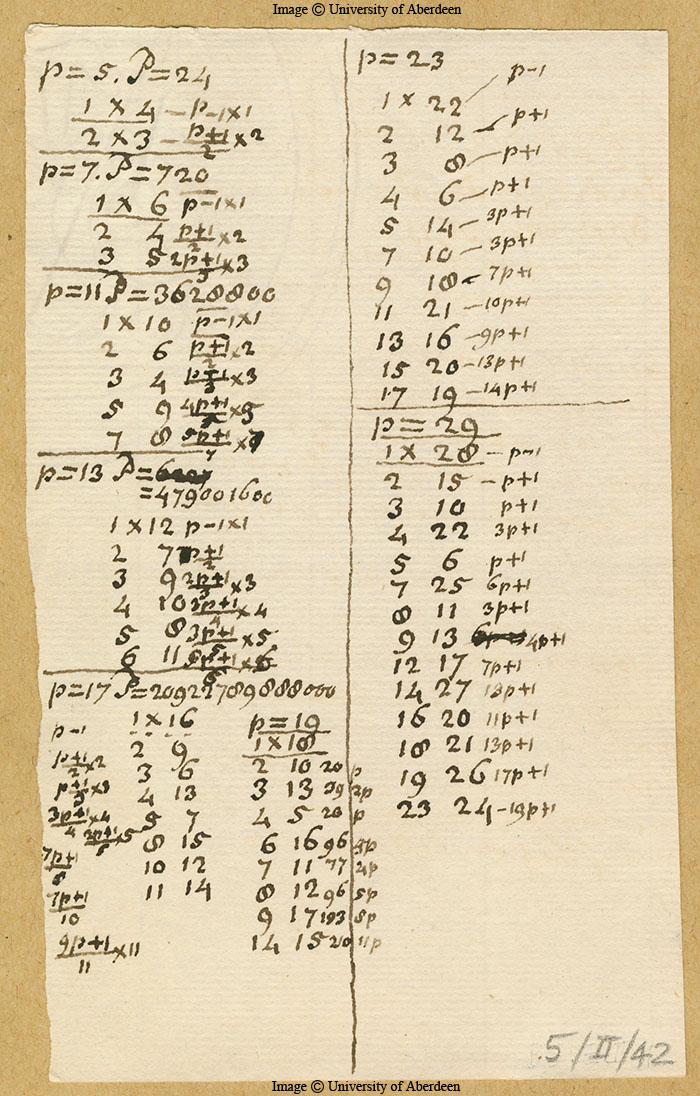 Image © University of Aberdeen
p = 5. P = 24
1 × 4 – p-1×1
2 × 3 – p+1/2 ×2
p = 7. P = 720
1 × 6 p-1×1
2 4 p+1/2 ×2
3 5 2p+1/3 ×3
p = 11 P = 3628800
1 × 10 p-1×1
2 6 p+1/2 ×2
3 4 p+1/3 ×3
5 9 4p+1/5 ×5
7 8 5p+1/7 ×7
p = 13 P =
= 479001600
1 × 12 p-1×1
2 7 p+1/2
3 9 2p+1/3 ×3
4 10 3p+1/4 ×4
5 8 3p+1/5 ×5
6 11 5p+1/6 ×6
p = 17 P = 20922789888000
p-1 1 × 16
p+1/2 ×2 2 9
p+1/3 ×3 3 6
3p+1/4 ×4 4 13
2p+1/5 ×5 5 7
7p+1/8 8 15
7p+1/10 10 12
9p+1/11 ×11 11 14
p = 19
1 × 18
2 10 20 p
3 13 39 2p
4 5 20 p
6 16 96 5p
7 11 77 4p
8 12 96 5p
9 17 153 8p
14 15 20 11p
p = 23
1 × 22 p-1
2 12 – p+1
3 8 – p+1
4 6 – p+1
5 14 – 3p+1
7 10 – 3p+1
9 18 – 7p+1
11 21 – 10p+1
13 16 – 9p+1
15 20 – 13p+1
17 19 – 14p+1
p = 29
1 × 28 – p-1
2 15 – p+1
3 10 p+1
4 22 3p+1
5 6 p+1
7 25 6p+1
8 11 3p+1
9 13 4p+1
12 17 7p+1
14 27 13p+1
16 20 11p+1
18 21 13p+1
19 26 17p+1
23 24 – 19p+1
5/II/42
Image © University of Aberdeen